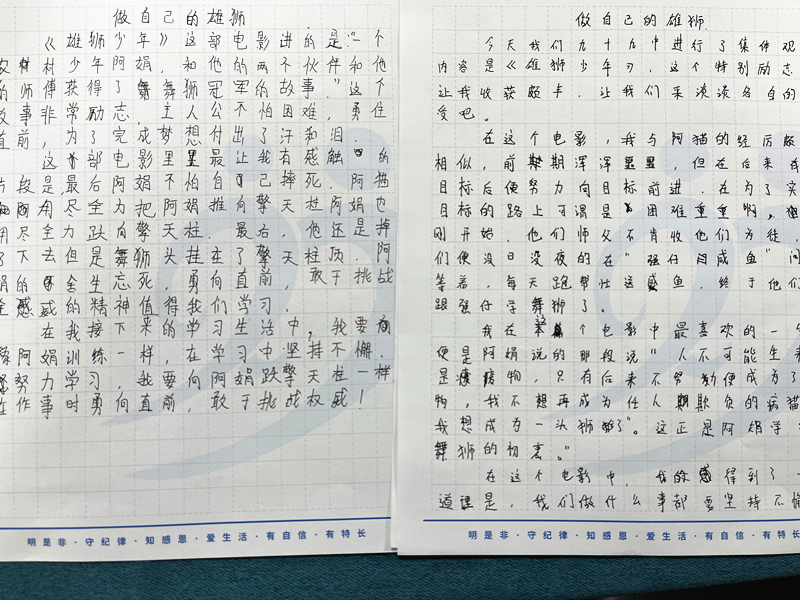 做自己的雄狮
《雄狮少年》这部电影讲的是"一个
农村村少年阿娟,和他的两个伙伴和他
的师傅获得了舞狮冠军给故事"这个
故事非常励志,主人公不怕困难,勇往
直前,为了完成梦想付出了汗和泪.
这部电影里最让我有感触的
片段是最后阿娟不怕自己摔死.阿猫
阿用尽全力把阿娟推向擎天柱阿娟也
用尽全力跃向擎天柱.最后,他还是掉
了下去但是舞狮头挂在了擎天柱顶.阿
娟的全生忘死,勇向直前,敢于挑战
全感威的精神值得我们学习.
在我接下来的学习生活中,我要向
阿娟训练一样,在学习中坚持不懈.
努力学习,我要向阿娟跃擎天柱一样
在作事时勇向直前,敢于挑战权威!
明是非·守纪律·知感恩·爱生活·有自信·有特长
做自己的雄狮.
今天我们九十九中进行了集体观
内容是《雄狮少年》,这个特别励志
让我收获颇丰.让我们来谈谈各自的
受吧.
在这个电影,我与阿猫的经历颇
相似,前期浑浑噩噩,但在后来有
目标后便努力向目标前进.在为了实
目标的路上可谓是困难重重啊,
刚开始.他们师父不肯收他们为徒,
们便没日没夜的在"强仔咸鱼"门
等着,每天跑帮忙送咸鱼,终于他们
跟强仔学舞狮了.
我在这个电影中最喜欢的一
便是阿娟说的那段说"人不可能生来
是废物,只有后来不努力便成为了
物,我不想再成为任人欺负的病猫
我想成为一头狮够了".这正是阿娟学
舞狮的初衷。"
在这个电影中,我的感得到了一
道理是,我们做什么事都要坚持不懈
明是非·守纪律·知感恩·爱生活·有自信·有特